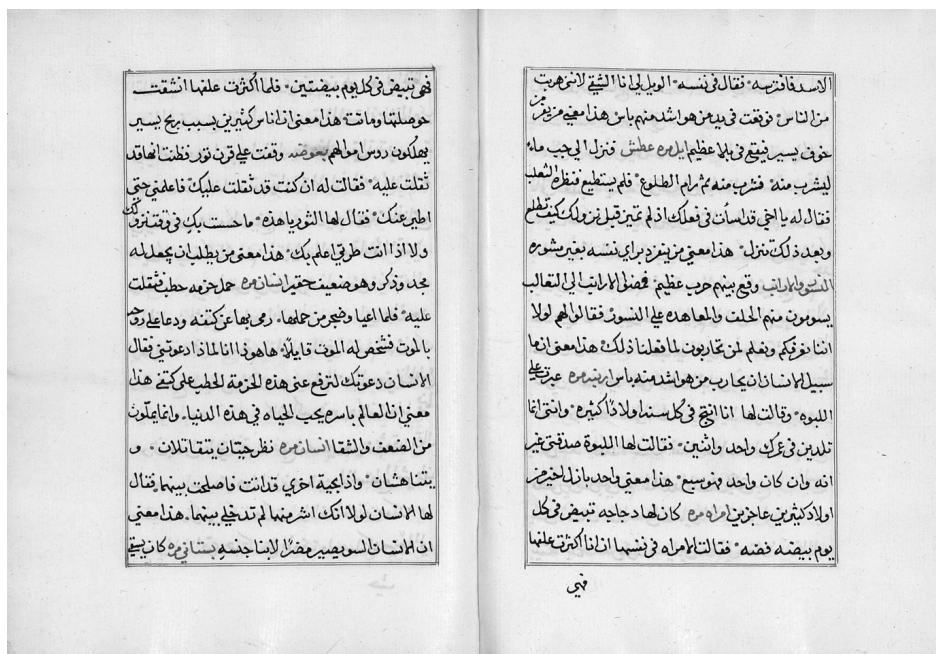 الاسد فافترسه فقال في نفسه الويل لي انا الشقي لانني هربت
من الناس فوقعت في يد من هو اشد منهم باس هذا معني من يفر من
خوف يسير فيقع في بلاء عظيم ايل مره عطش فنزل الي جب ماء
ليشرب منه فشرب منه ثم رام الطلوع فلم يستطيع فنظره الثعلب
فقال له يا اخي قد اسأت في فعلك اذ لم تميز قبل نزولك كيف تطلع
وبعد ذلك تنزل هذا معني من ينفرد براي نفسه بغير مشوره
النسور والارانب وقع بينهم حرب عظيم فمضي الارانب الي الثعالب
يسومون منهم الحلف والمعاهده علي النسور فقالوا لهم لولا
اننا نعرفكم ونعلم لمن تحاربون لما فعلنا ذلك هذا معني انه ما
سبيل الانسان ان يحارب من هو اشد منه باس ارنبه مره عبرت علي
اللبوه وقالت لها انا انتج في كل سنه اولادا كثيره وانتي انما
تلدين في عمرك واحد واثنين فقالت لها اللبوة صدقتي غير
انه وان كان واحد فهو سبع هذا معني واحد بازل اخير من
اولاد كثيرين عاجزين امراه مره كان لها دجاجه تبيض في كل
يوم بيضه فضه فقالت الامراه في نفسها اذ انا اكثرت علفها
فهي
فهي تبيض في كل يوم بيضتين فلما اكثرت علفها انشقت
حوصلتها وماتت هذا معني ان اناس كثيرين بسبب ربح يسير
يهلكون روس اموالهم بعوضه وقفت علي قرن ثور فظنت انها قد
ثقلت عليه فقالت له ان كنت قد ثقلت عليك فاعلمني حتي
اطير عنك فقال لها الثور يا هذه ما حسست بك في وقت نزولك
ولا اذا انت طرتي اعلم بك هذا معني من يطلب ان يجعل له
مجد وذكر وهو ضعيف حقير انسان مره حمل حزمه حطب فثقلت
عليه فلما اعيا وضجر من حملها رمي بها عن كتفه ودعا علي روحه
بالموت فشخص له الموت قايلا هاهوذا انا لماذا دعوتني فقال
الانسان دعوتك لترفع عني هذه الحزمة الحطب علي كتفي هذا
معني ان العالم باسره يحب الحياه في هذه الدنيا وانما يملون
من الضعف والشقا انسان مره نظر حيتان يتقاتلان و
يتناهشان واذا بحية اخري قد اتت فاصلحت بينهما فقال
لها الانسان لولا انك اشر منهما لم تدخلي بينهما هذا معني
ان الانسان السو يصير مضرا لابنا جنسه بستاني مره كان يسقي